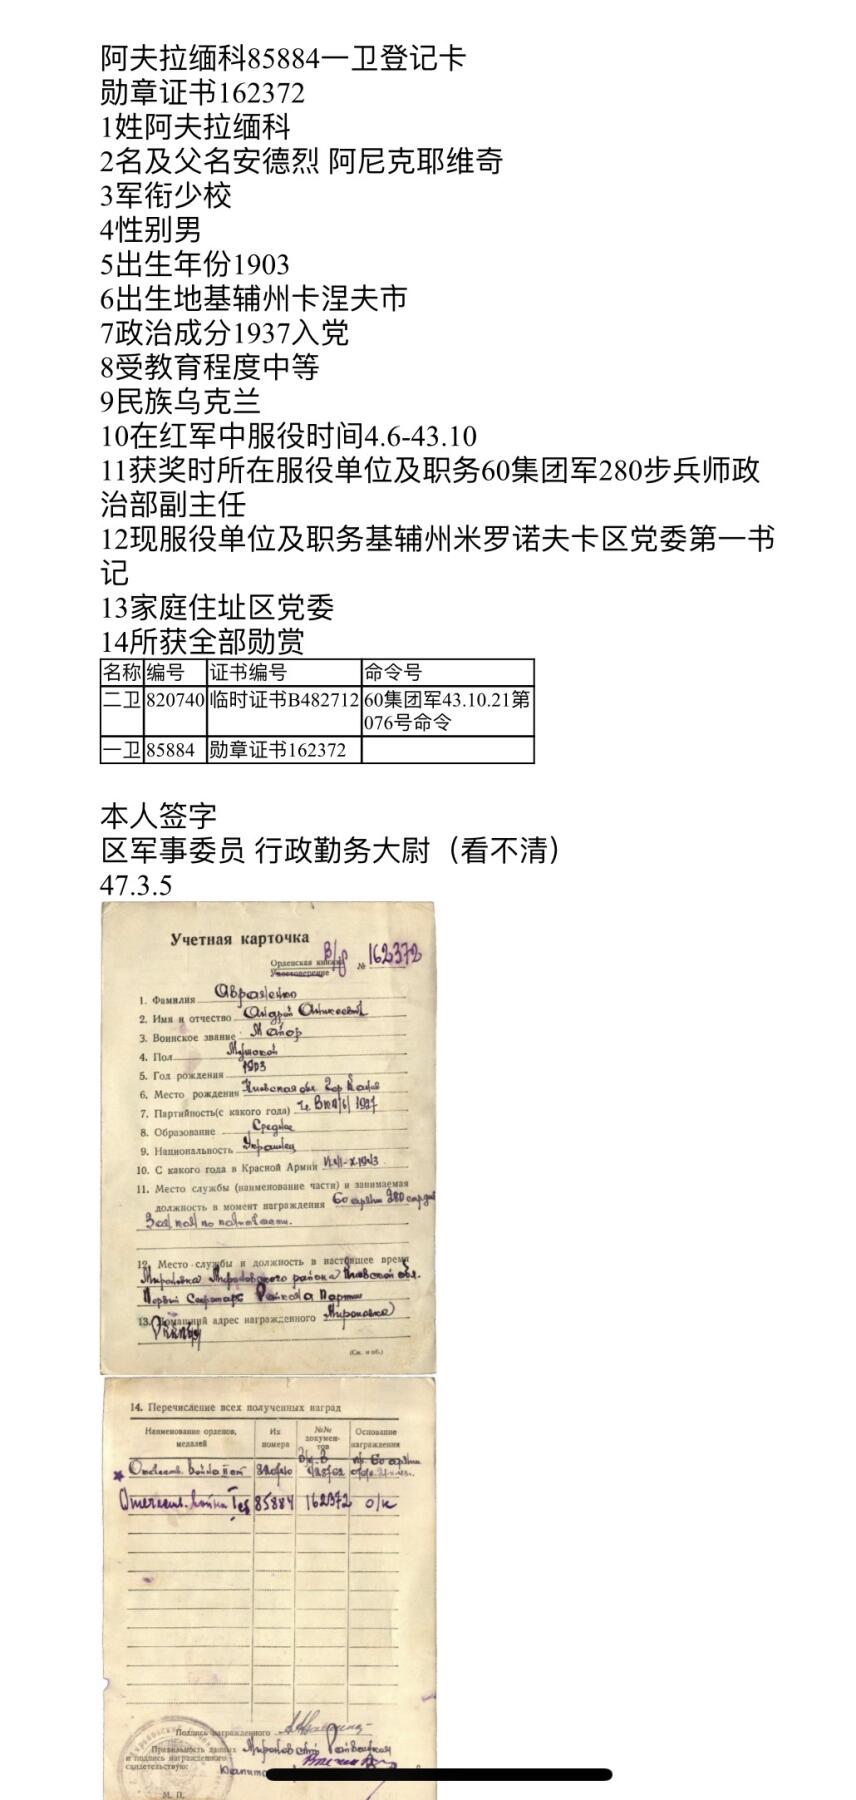 阿夫拉缅科85884一卫登记卡
勋章证书162372
1姓阿夫拉缅科
2名及父名安德烈 阿尼克耶维奇
3军衔少校
4性别男
5出生年份1903
6出生地基辅州卡涅夫市
7政治成分1937入党
8受教育程度中等
9民族乌克兰
10在红军中服役时间4.6-43.10
11获奖时所在服役单位及职务60集团军280步兵师政
治部副主任
12现服役单位及职务基辅州米罗诺夫卡区党委第一书
记
13家庭住址区党委
14所获全部勋赏
名称 编号 证书编号 命令号
二卫 820740 临时证书B482712 60集团军43.10.21第
076号命令
一卫 85884 勋章证书162372
本人签字
区军事委员 行政勤务大尉（看不清）
47.3.5
Учетная карточка
Орденская книжка
Удостоверение № 162372
1. Фамилия
2. Имя и отчество Андрей Аникеевич
3. Воинское звание Майор
4. Пол Мужской
5. Год рождения 1903
6. Место рождения Киевская обл. гор Канев
7. Партийность(с какого года) 1937
8. Образование Среднее
9. Национальность Украинец
10. С какого года в Красной Армии
11. Место службы (наименование части) и занимаемая
должность в момент награждения 60 армии 280
12. Место службы и должность в настоящее время
Мироновка Мироновского района Киевской обл.
Первый Секретарь Райкома Партии
13. Домашний адрес награжденного Мироновка
(См. н об.)
14. Перечисление всех полученных наград
Наименование орденов, медалей Их номера №№ документов Основание награждения
Отечеств. война
Отечеств. война 85884 162372 о/к
Подпись награжденного
Правильность данных
и подпись награжденного
свидетельствую:
М. П.